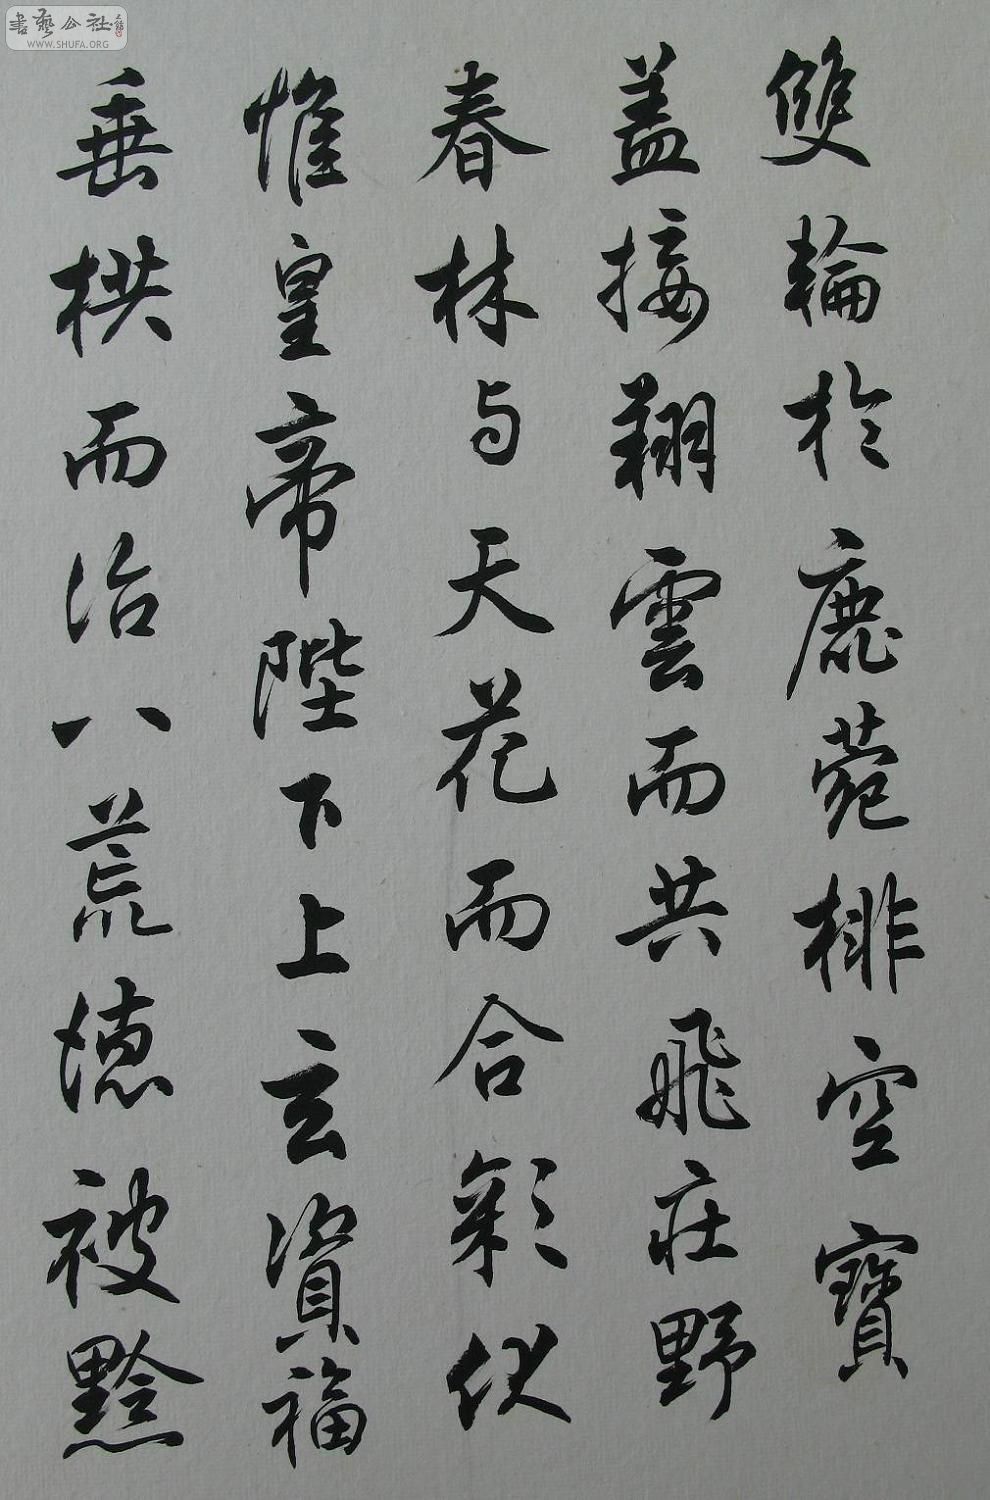 雙輪於鹿菀排空寶
盖接翔雲而共飛莊野
春林与天花而合彩伏
惟皇帝陛下上玄資福
垂拱而治八荒德被黔
書藝公社
WWW.SHUFA.ORG